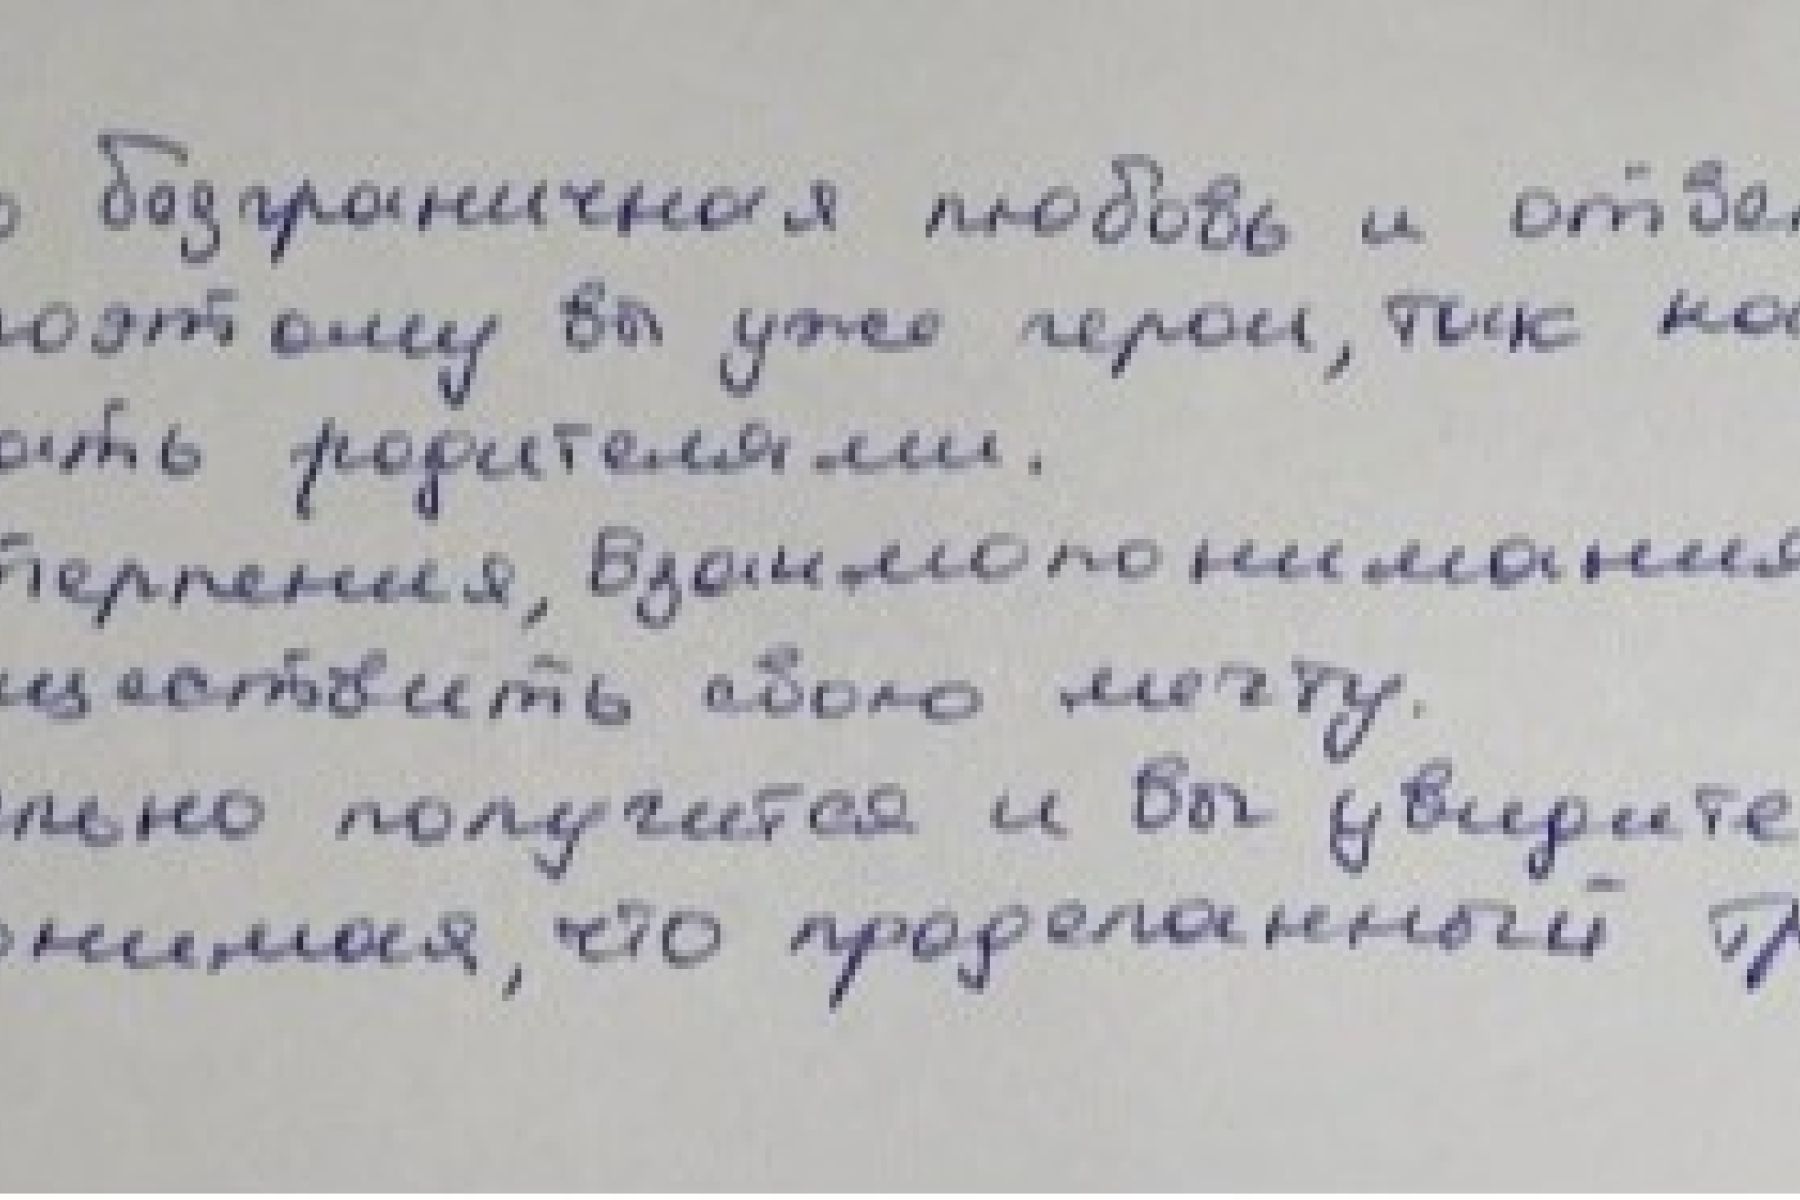 о безграничная любовь и отве
поэтому вы уже герои, так ка
ать родителями.
терпения, взаимопонимания
ществить свою мечту.
льно получится и вы увидите
онимая, что проделанный тр